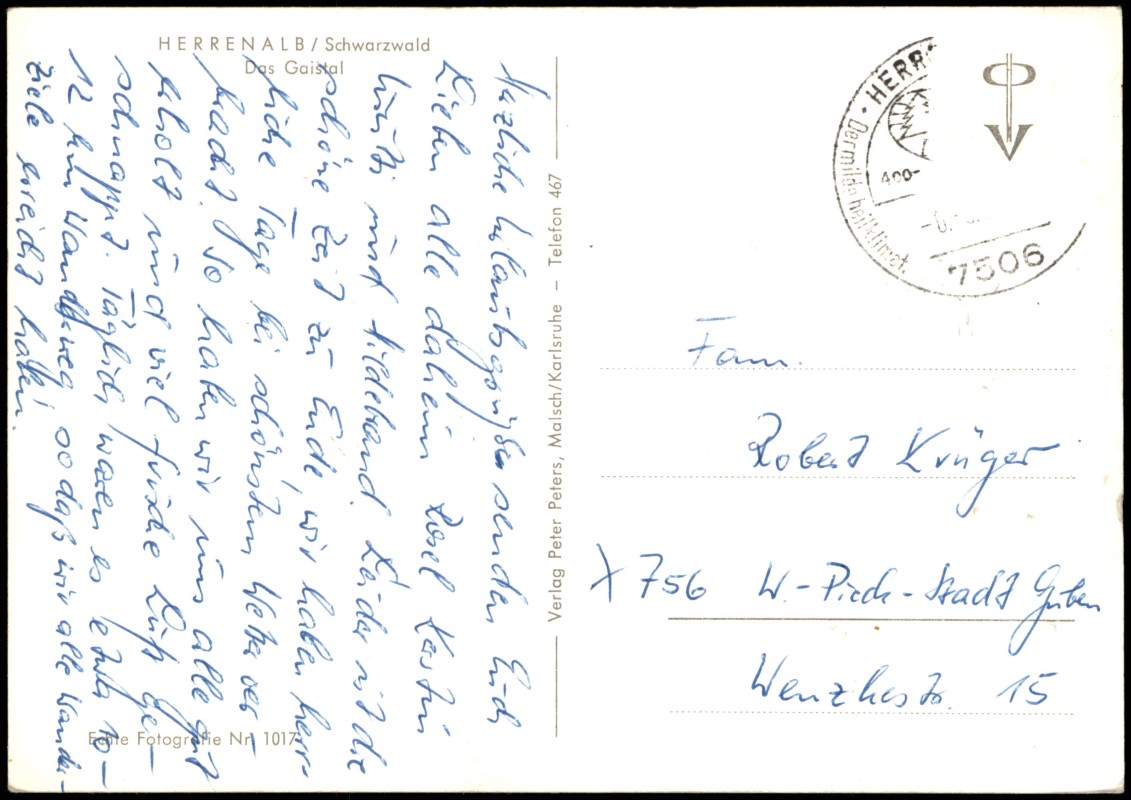 HERRENALB / Schwarzwald
Das Gaistal
Herzliche Urlaubsgrüße senden Euch
Lieben alle daheim Rosel Kerstin
und Hildebrand. Leider ist die
schöne Zeit zu Ende, wir haben herr-
liche Tage bei schönstem Wetter ver-
bracht. So haben wir uns alle gut
erholt und viel frische Luft ge-
schnappt. Täglich waren es etwa 10-
12 km Wanderweg so daß wir alle Wander-
ziele erreicht haben.
Echte Fotografie Nr. 1017
Verlag Peter Peters, Malsch/Karlsruhe — Telefon 467
HERR
Der milde heilklimat.
400-
7506
Fam.
Robert Krüger
X 756 W.-Pieck-Stadt Guben
15